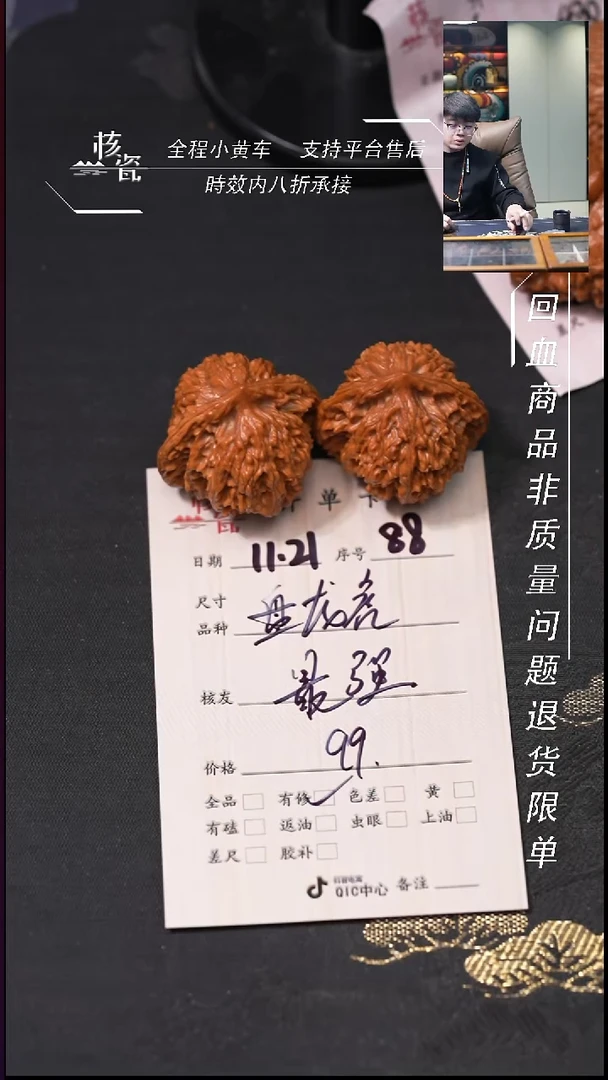 核瓷
全程小黄车 支持平台售后
時效内八折承接
回血商品非质量问题退货限单
核瓷 单卡
日期 11.21 序号 88
尺寸
品种 盘龙虎
核友 最强
价格 99.
全品 有修 色差 黄
有磕 返油 虫眼 上油
差尺 胶补
QIC中心 备注